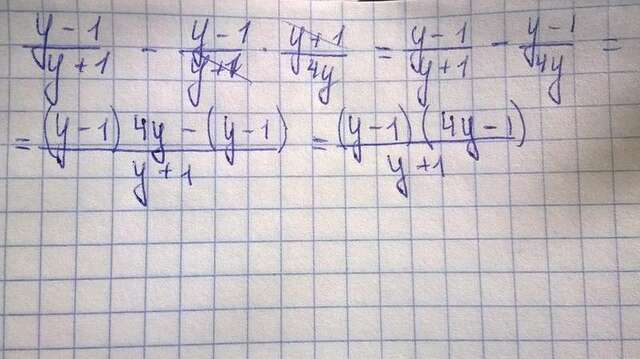 (y-1)/(y+1) - (y-1)/(y+1) · (y+1)/(4y) = (y-1)/(y+1) - (y-1)/(4y) =
= ((y-1)4y-(y-1))/(y+1) = ((y-1)(4y-1))/(y+1)